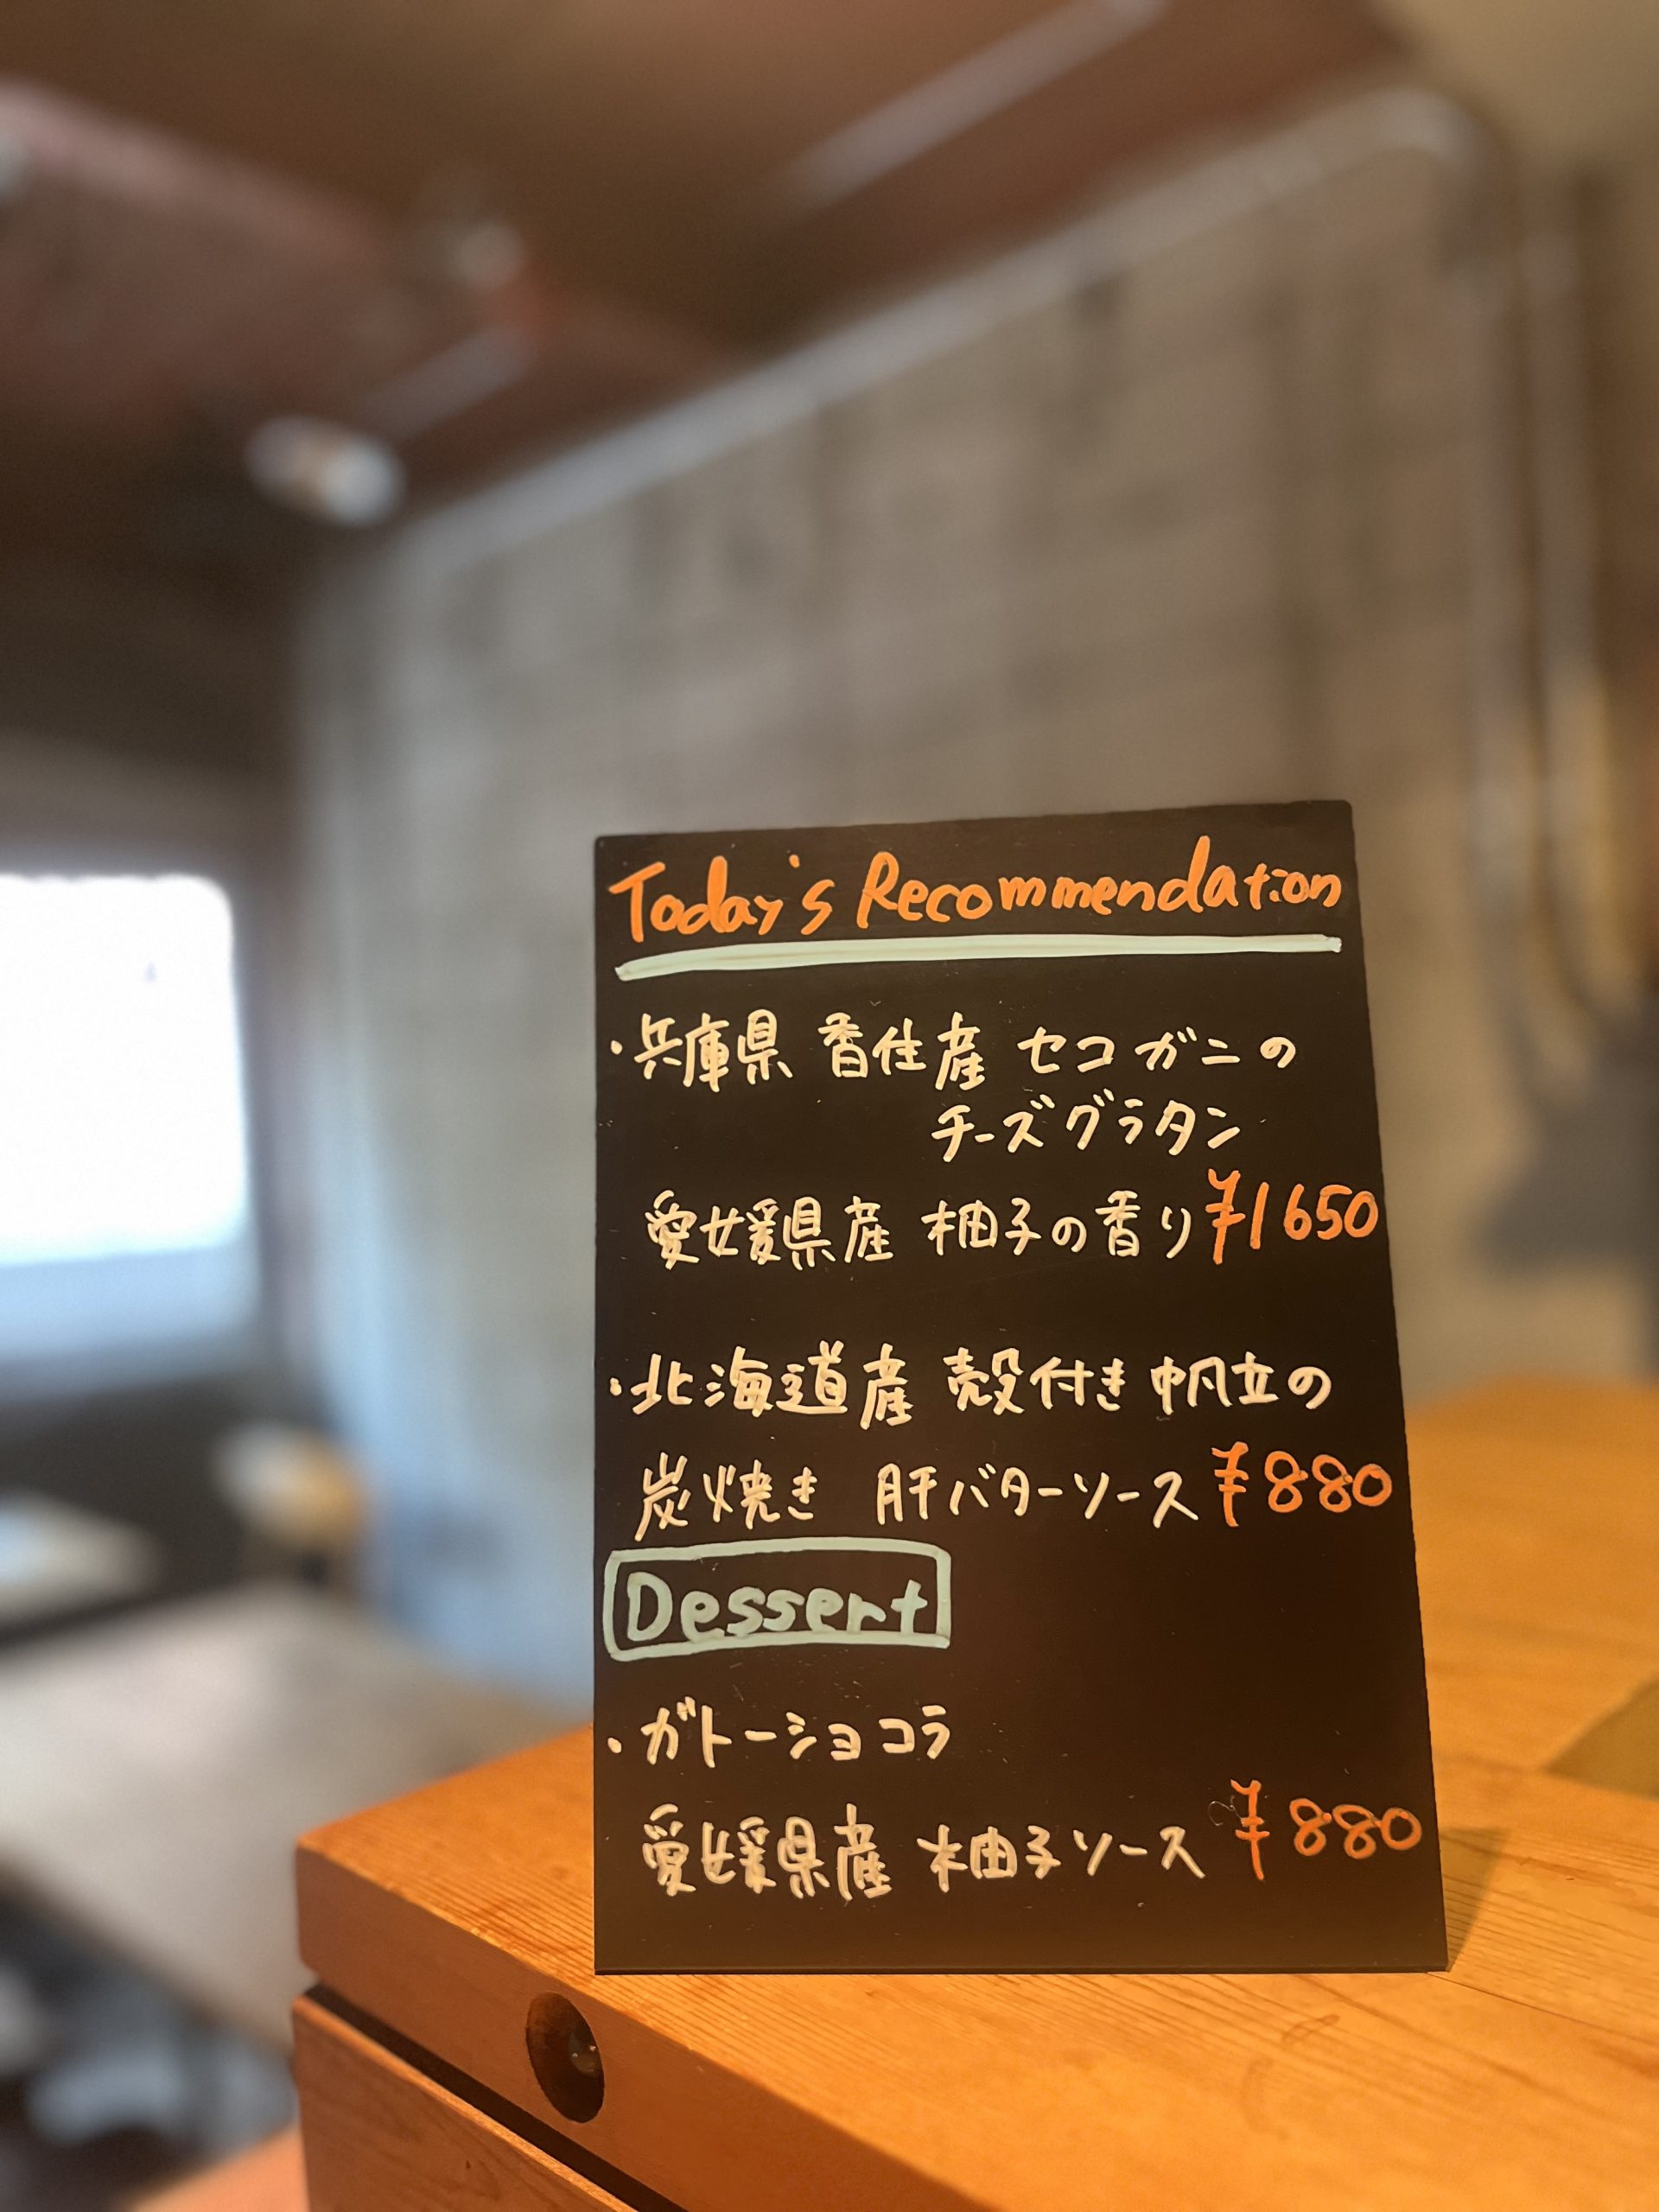 Today's Recommendation
・兵庫県 香住産 セコガニの
チーズグラタン
愛媛県産 柚子の香り ¥1650
・北海道産 殻付き帆立の
炭焼き 肝バターソース ¥880
Dessert
・ガトーショコラ
愛媛県産 柚子ソース ¥880